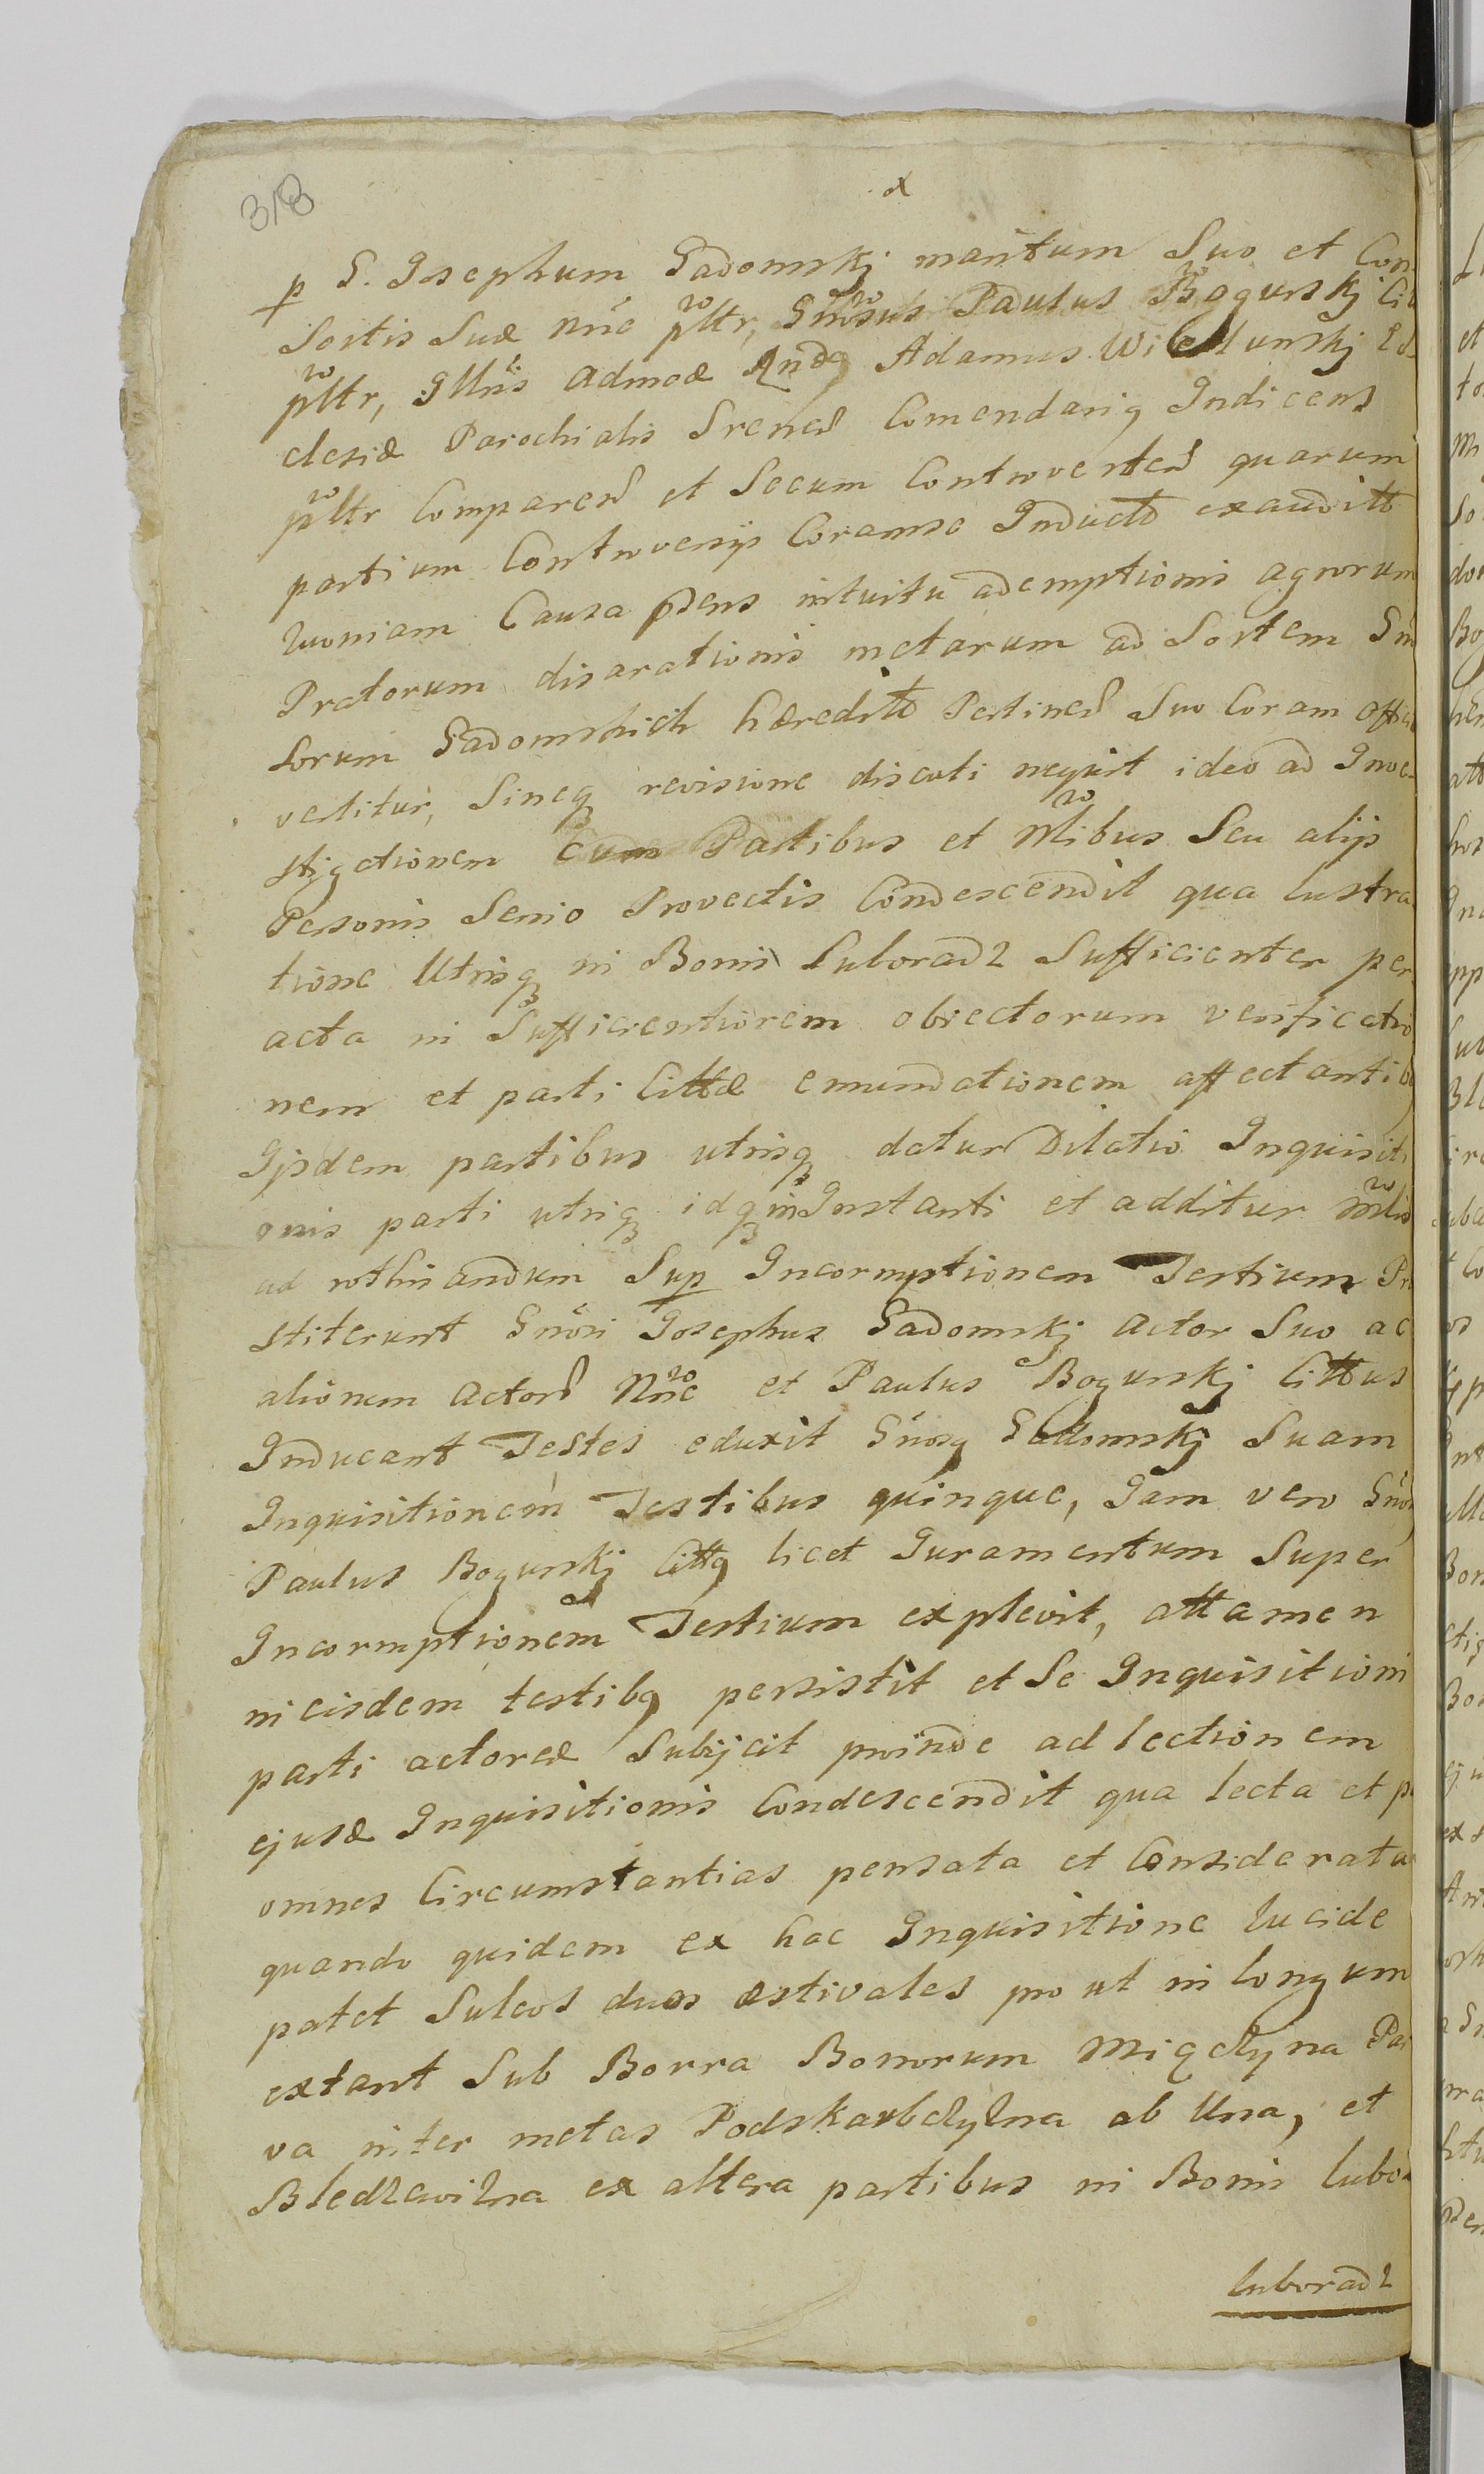 318
x
p G. Josephum Gadomskj maritum Suo et Con
Sortis Suæ nnc pltr, Gnosus Paulus Bogurskj Cit
pltr, Illris admod Rndg Adamus Ec
clesiæ Parochialis Srenes Comendarig Indicens
pltr Compares et Secum Controvertes quarum
partium Controversys Coramse Inductd exauditd
Quoniam Causa pdens intuitu ademptionis agrorum
Pratorum disarationis metarum ad Sortem Gno
Sorum Gadomskich hæreditd Pertines Suo Coram Offici
vertitur, Sineq revisione discuti nequit ideo ad Inve
stigationem cum Partibus et Mlibus Seu alijs
Personis Senio Provectis Condescendit qua lustra
tione Utrisq in Bonis Luboradz Sufficienter per
acta in Sufficientiorem obiectorum verificatio
nem et parti Cittæ emundationem affectantibg
Ijsdem partibus utrisq datur Dilatio Inquisiti
onis parti utriq idq in Instanti et additur Mlis
ad rothisandum Sup Incorruptionem Testium Pr
stiterunt Gnosi Josephus Gadomskj actor Suo ac
alionum actors Nnc et Paulus Bogurskj Cittus
Inducant Testes eduxit Gnosg Gadomskj Suam
Inquisitionem Testibus quinque, Jam vero Gnosg
Paulus Bogurskj Cittg licet Juramentum Super
Incorruptionem Testium explevit, attamen
in eisdem testibg persistit et Se Inquisitioni
parti actoreæ Subijcit proinde ad lectionem
ejusd Inquisitionis Condescendit qua lecta et p
omnes Circumstantias pensata et Considerata
quando quidem ex hac Inquisitione lucide
patet Sulcos duos æstivales pro ut in longum
extant Sub Borra Bonorum Migdzyna Par
va inter metas Podskarbczyzna ab Una, et
Bledzewizna ex altera partibus in Bonis lubor
luboradz